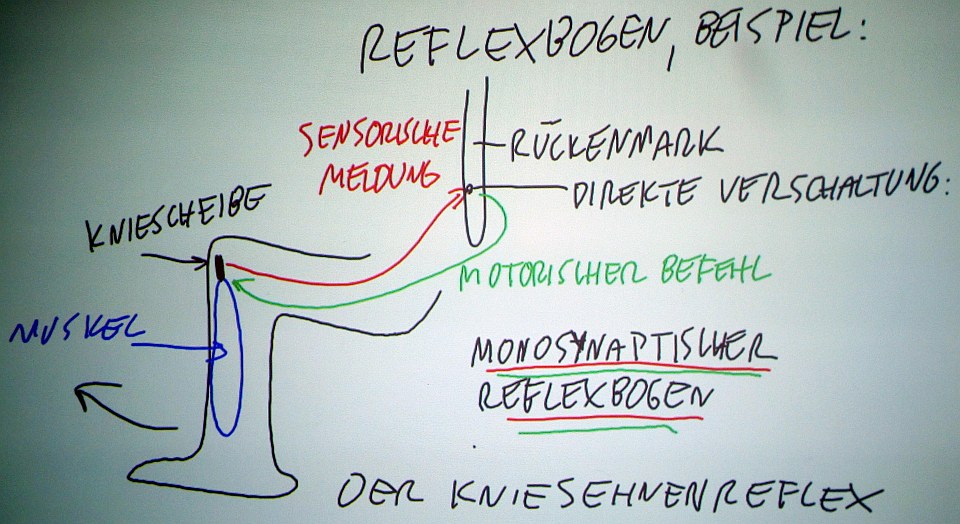 REFLEXBOGEN, BEISPIEL:
SENSORISCHE
MELDUNG
RÜCKENMARK
DIREKTE VERSCHALTUNG:
KNIESCHEIBE
MOTORISCHER BEFEHL
MUSKEL
MONOSYNAPTISCHER
REFLEXBOGEN
DER KNIESEHNENREFLEX